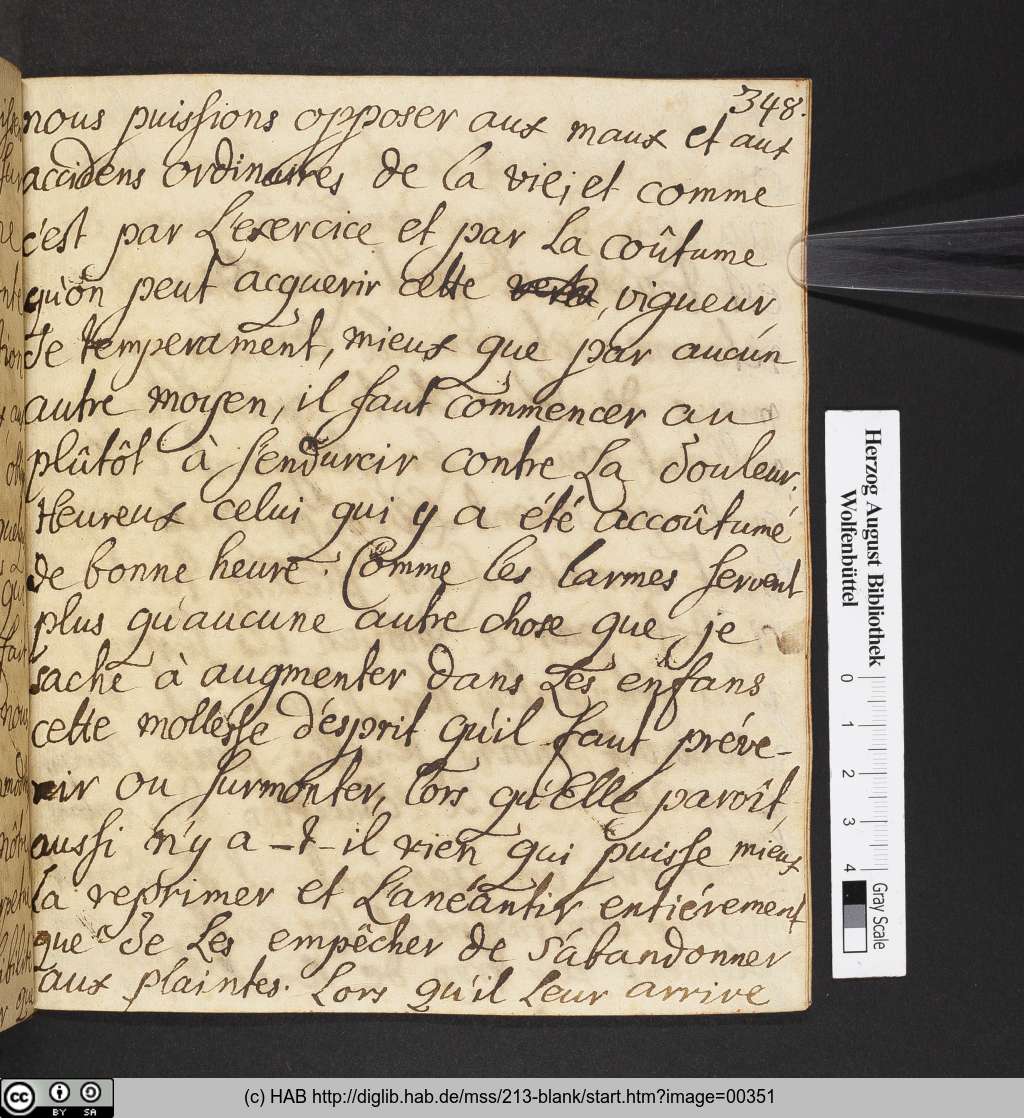 348.
nous puissions opposer aux maux et aux
accidens ordinaires de la vie; et comme
c'est par L'exercice et par La coûtume
qu'on peut acquerir cette vigueur
de temperament, mieux que par aucun
autre moyen, il faut commencer au
plûtôt à s'endurcir contre La douleur.
Heureux celui qui y a été accoûtumé
de bonne heure. Comme les larmes servent
plus qu'aucune autre chose que je
sache à augmenter dans Les enfans
cette mollesse d'esprit qu'il faut préve-
nir ou surmonter, lors qu'Elle paroît,
aussi n'y a-t-il rien qui puisse mieux
La reprimer et L'anéantir entiérement
que de Les empêcher de s'abandonner
aux plaintes. Lors qu'il Leur arrive
Herzog August Bibliothek
Wolfenbüttel
0 1 2 3 4
Gray Scale
cc BY SA
(c) HAB http://diglib.hab.de/mss/213-blank/start.htm?image=00351